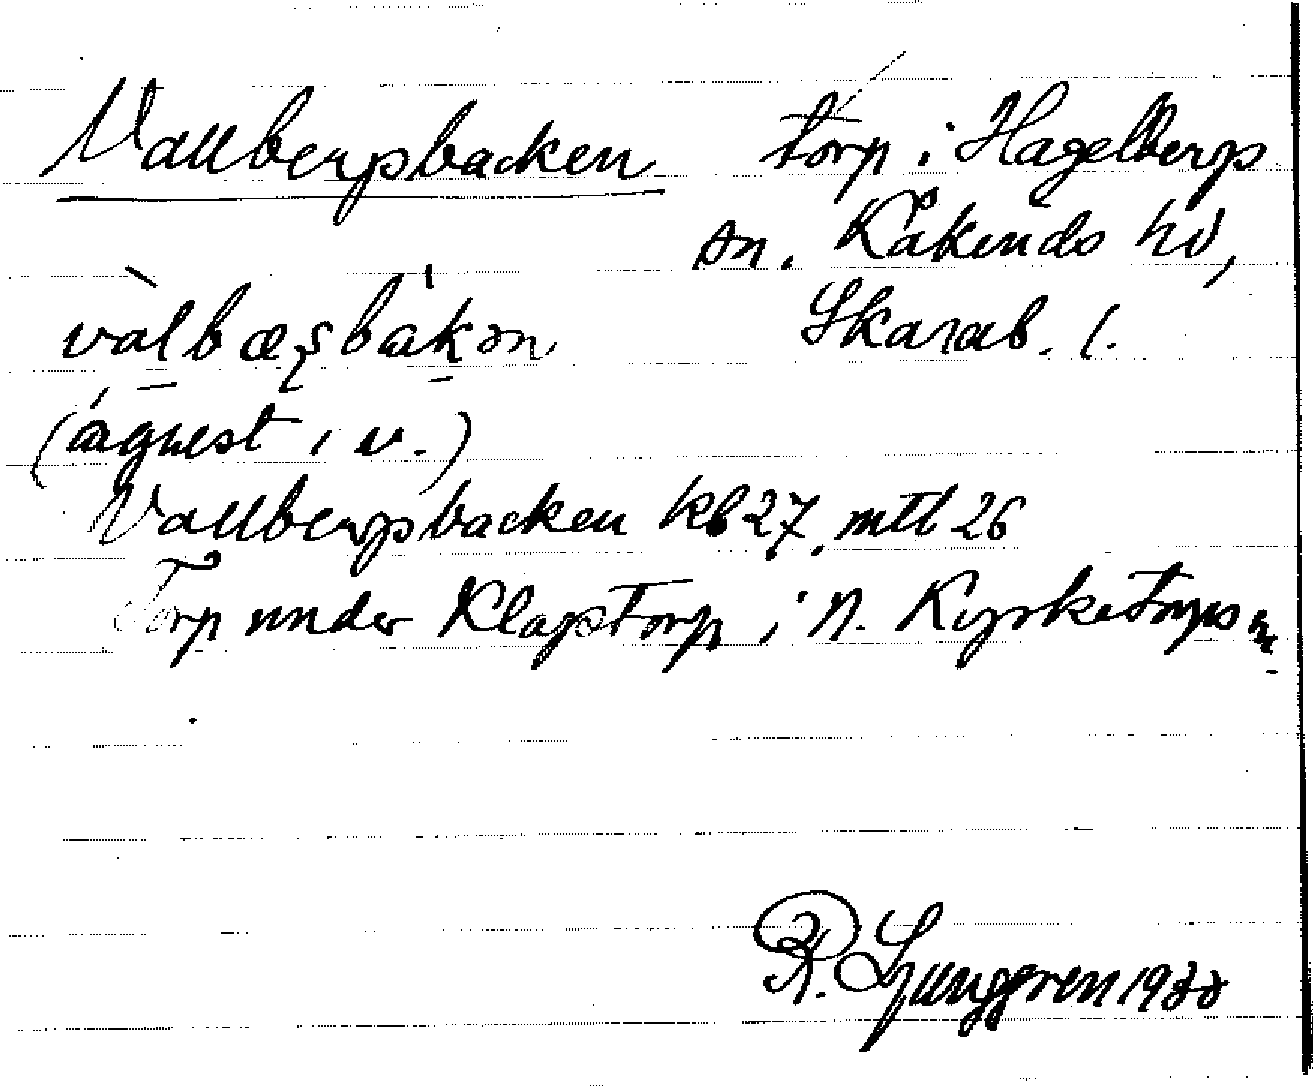 Vallbergsbacken torp i Hagelbergs
sn. Kåkinds hd,
Skarab. l.
(ägnest i v.)
Vallbergsbacken kb 27, mtl 26
Torp under Klagstorp i N. Kyrketorps sn
R. Ljunggren 1933